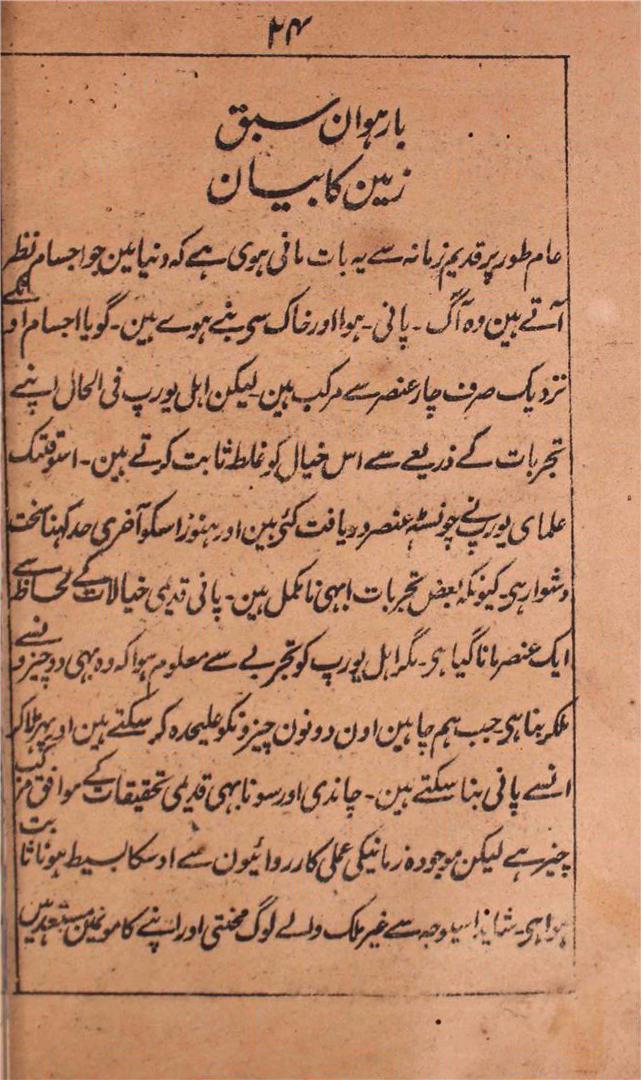 ۲۴
بارہوان سبق
زمین کا بیان
عام طور پر قدیم زمانہ سے یہ بات مانی ہوی ہے کہ دنیا مین جو اجسام نظر
آتے ہین وہ آگ ۔ پانی ۔ ہوا اور خاک سی بنے ہوے ہین ۔ گویا اجسام اونکے
نزدیک صرف چار عنصر سے مرکب ہین ۔ لیکن اہل یورپ فی الحال اپنے
تجربات کے ذریعے سے اس خیال کو غلط ثابت کرتے ہین ۔ اسوقتتک
علمای یورپ نے چونسٹہ عنصر دریافت کئی ہین اور ہنوز اسکو آخری حد کہنا سخت
دشوار ہی ۔ کیونکہ بعض تجربات ابہی نامکمل ہین ۔ پانی قدیمی خیالات کے لحاظ سے
ایک عنصر مانا گیا ہی ۔ مگر اہل یورپ کو تجربے سے معلوم ہوا کہ وہ بہی دو چیزونسے
ملکر بنا ہی جب ہم چاہین اون دونون چیزونکو علیحدہ کر سکتے ہین اور پہر ملاکر
انسے پانی بنا سکتے ہین ۔ چاندی اور سونا بہی قدیمی تحقیقات کے موافق مرکب
چیز ہے لیکن موجودہ زمانیکی عملی کارروائیون سے اوسکا بسیط ہونا ثابت
ہوا ہی ۔ شاید اسیوجہ سے غیر ملک والے لوگ محنتی اور اپنے کامونمین مستعد ہین